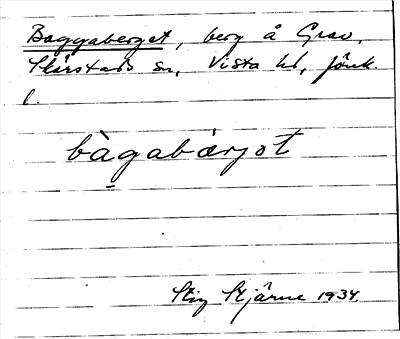 Baggaberget, berg å Grav,
Skärstads sn, Vista hd, Jönk.
l.
bàgabærjot
Stig Stjärne 1934